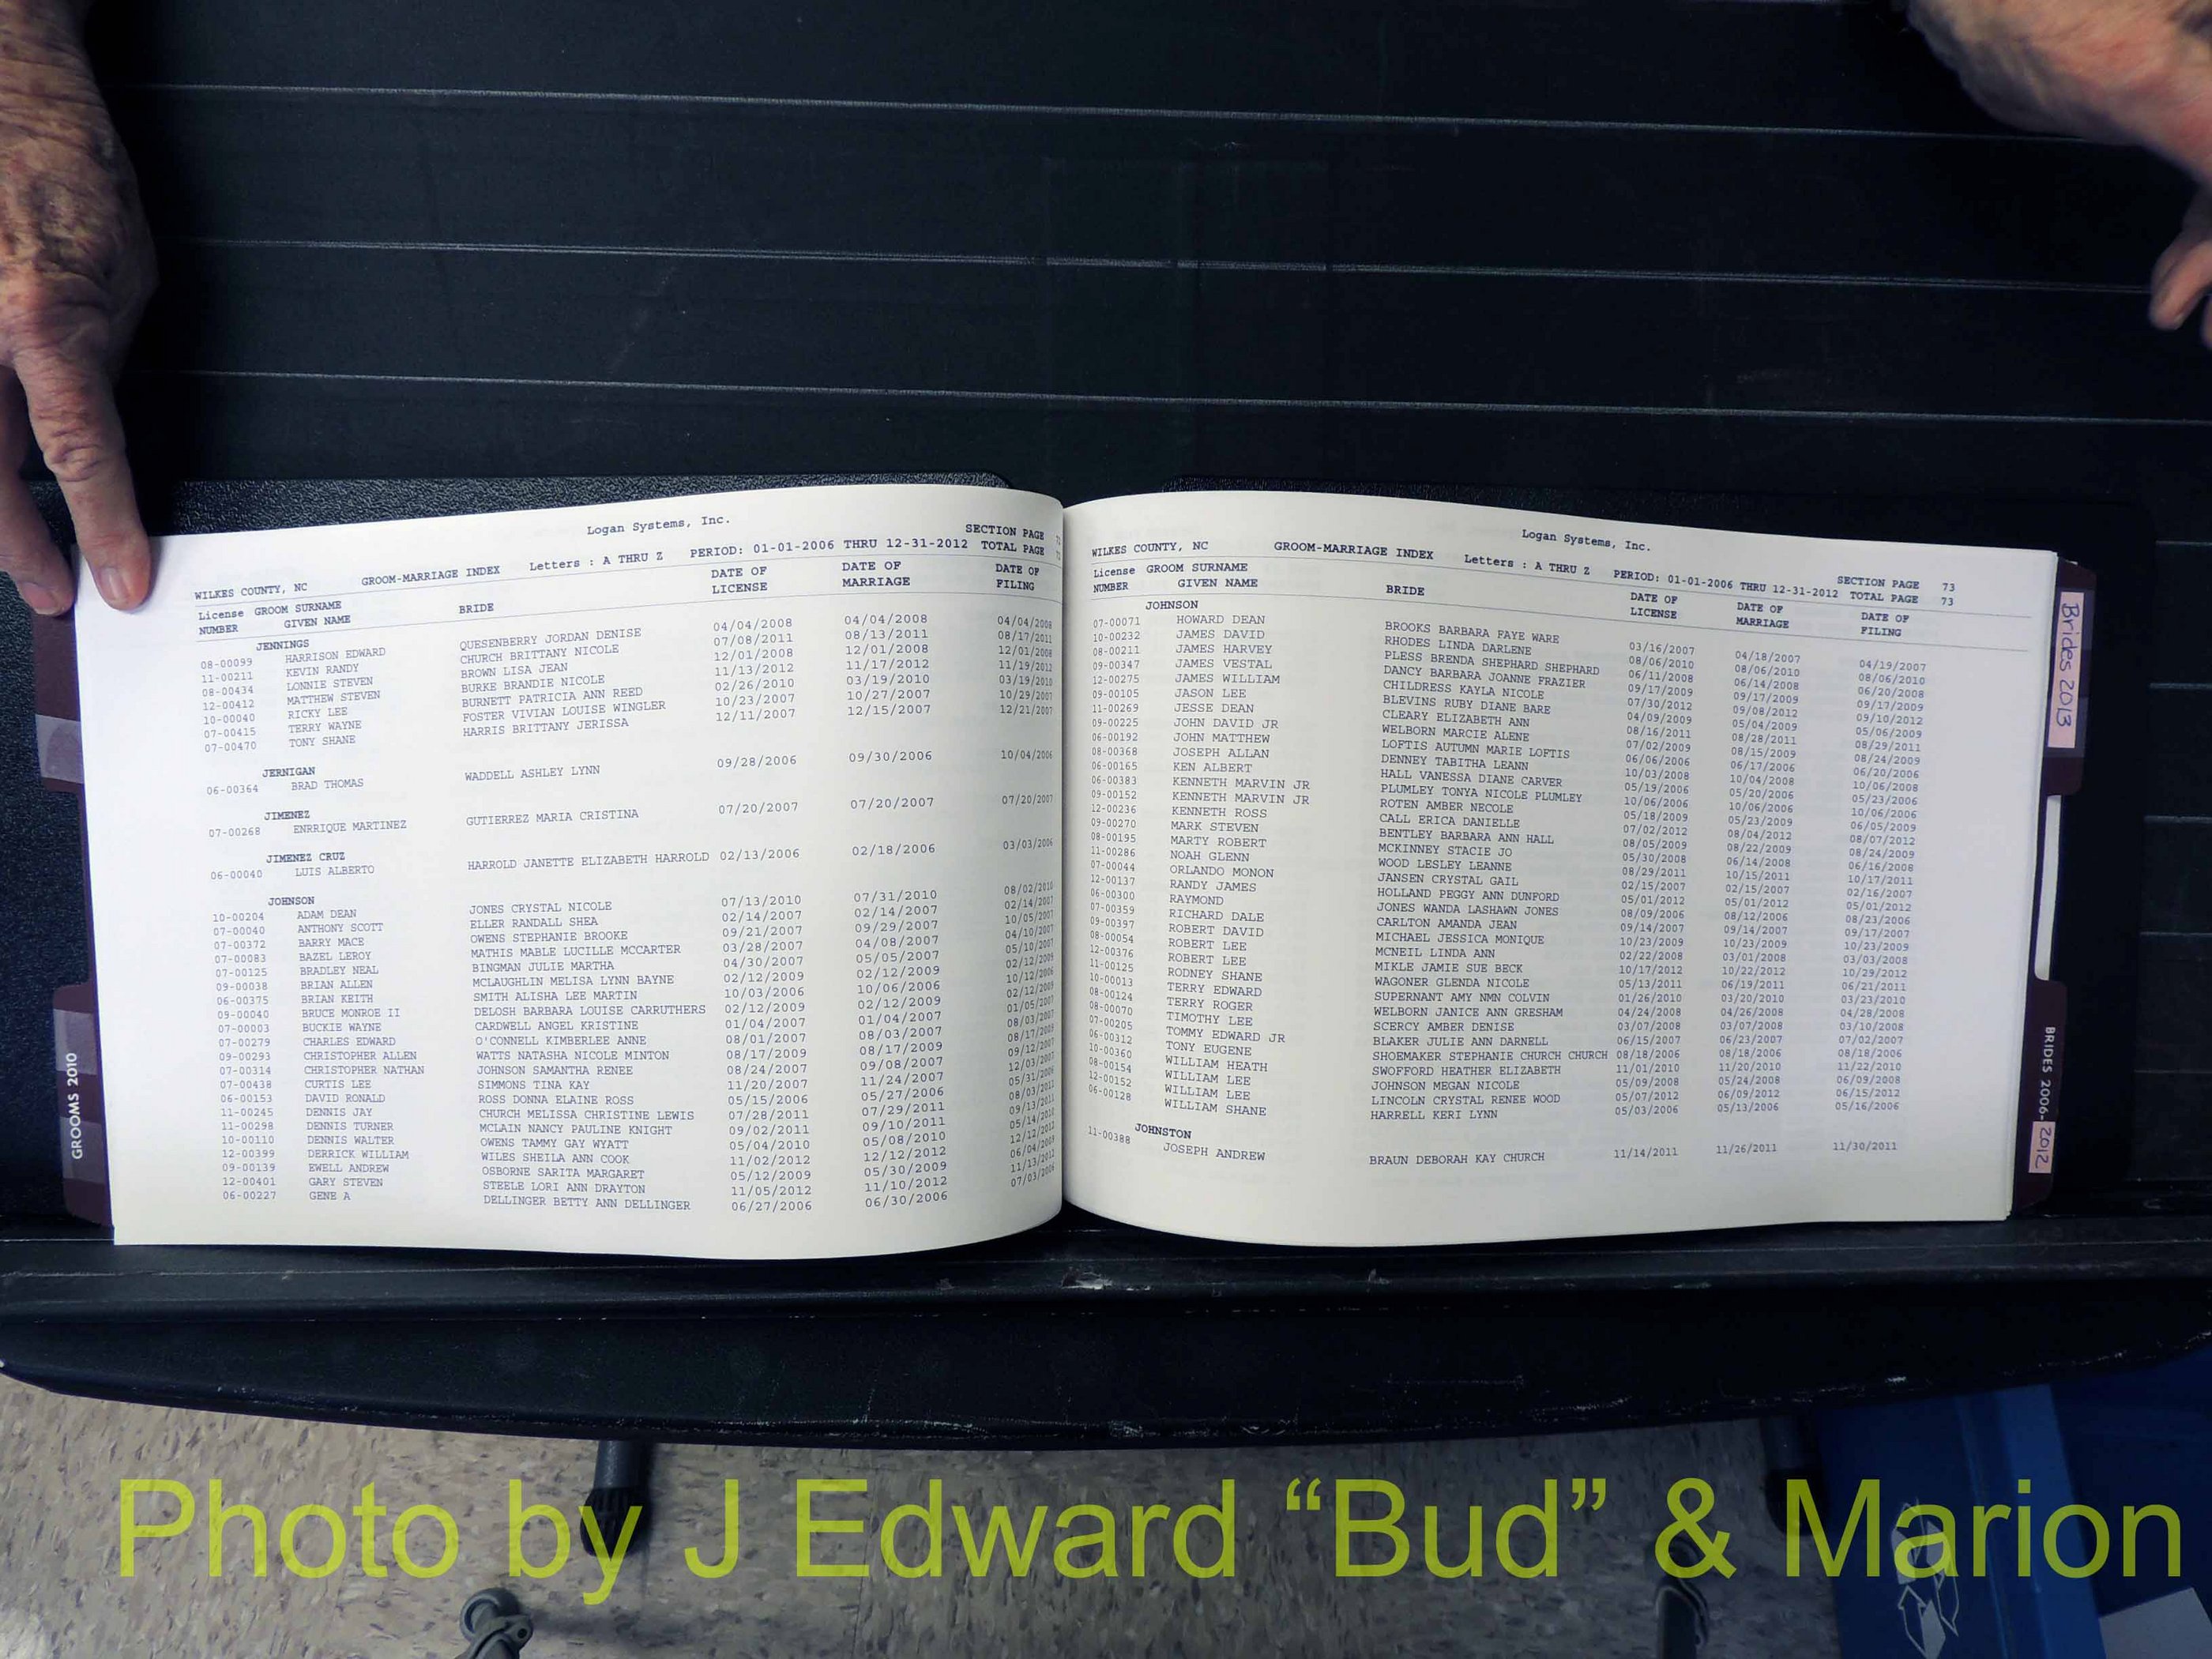 Logan Systems, Inc.
SECTION PAGE
WILKES COUNTY, NC GROOM-MARRIAGE INDEX Letters : A THRU Z PERIOD: 01-01-2006 THRU 12-31-2012 TOTAL PAGE
License GROOM SURNAME DATE OF DATE OF DATE OF
NUMBER GIVEN NAME BRIDE LICENSE MARRIAGE FILING
JENNINGS
08-00099 HARRISON EDWARD QUESENBERRY JORDAN DENISE 04/04/2008 04/04/2008 04/04/2008
11-00211 KEVIN RANDY CHURCH BRITTANY NICOLE 07/08/2011 08/13/2011 08/17/2011
08-00434 LONNIE STEVEN BROWN LISA JEAN 12/01/2008 12/01/2008 12/01/2008
12-00412 MATTHEW STEVEN BURKE BRANDIE NICOLE 11/13/2012 11/17/2012 11/19/2012
10-00040 RICKY LEE BURNETT PATRICIA ANN REED 02/26/2010 03/19/2010 03/19/2010
07-00415 TERRY WAYNE FOSTER VIVIAN LOUISE WINGLER 10/23/2007 10/27/2007 10/29/2007
07-00470 TONY SHANE HARRIS BRITTANY JERISSA 12/11/2007 12/15/2007 12/21/2007
JERNIGAN
06-00364 BRAD THOMAS WADDELL ASHLEY LYNN 09/28/2006 09/30/2006 10/04/2006
JIMENEZ
07-00268 ENRRIQUE MARTINEZ GUTIERREZ MARIA CRISTINA 07/20/2007 07/20/2007 07/20/2007
JIMENEZ CRUZ
06-00040 LUIS ALBERTO HARROLD JANETTE ELIZABETH HARROLD 02/13/2006 02/18/2006 03/03/2006
JOHNSON
10-00204 ADAM DEAN JONES CRYSTAL NICOLE 07/13/2010 07/31/2010 08/02/2010
07-00040 ANTHONY SCOTT ELLER RANDALL SHEA 02/14/2007 02/14/2007 02/14/2007
07-00372 BARRY MACE OWENS STEPHANIE BROOKE 09/21/2007 09/29/2007 10/05/2007
07-00083 BAZEL LEROY MATHIS MABLE LUCILLE MCCARTER 03/28/2007 04/08/2007 04/10/2007
07-00125 BRADLEY NEAL BINGMAN JULIE MARTHA 04/30/2007 05/05/2007 05/10/2007
09-00038 BRIAN ALLEN MCLAUGHLIN MELISA LYNN BAYNE 02/12/2009 02/12/2009 02/12/2009
06-00375 BRIAN KEITH SMITH ALISHA LEE MARTIN 10/03/2006 10/06/2006 10/12/2006
09-00040 BRUCE MONROE II DELOSH BARBARA LOUISE CARRUTHERS 02/12/2009 02/12/2009 02/12/2009
07-00003 BUCKIE WAYNE CARDWELL ANGEL KRISTINE 01/04/2007 01/04/2007 01/05/2007
07-00279 CHARLES EDWARD O'CONNELL KIMBERLEE ANNE 08/01/2007 08/03/2007 08/03/2007
09-00293 CHRISTOPHER ALLEN WATTS NATASHA NICOLE MINTON 08/17/2009 08/17/2009 08/17/2009
07-00314 CHRISTOPHER NATHAN JOHNSON SAMANTHA RENEE 08/24/2007 09/08/2007 09/12/2007
07-00438 CURTIS LEE SIMMONS TINA KAY 11/20/2007 11/24/2007 12/03/2007
06-00153 DAVID RONALD ROSS DONNA ELAINE ROSS 05/15/2006 05/27/2006 05/31/2006
11-00245 DENNIS JAY CHURCH MELISSA CHRISTINE LEWIS 07/28/2011 07/29/2011 08/03/2011
11-00298 DENNIS TURNER MCLAIN NANCY PAULINE KNIGHT 09/02/2011 09/10/2011 09/13/2011
10-00110 DENNIS WALTER OWENS TAMMY GAY WYATT 05/04/2010 05/08/2010 05/14/2010
12-00399 DERRICK WILLIAM WILES SHEILA ANN COOK 11/02/2012 12/12/2012 12/12/2012
09-00139 EWELL ANDREW OSBORNE SARITA MARGARET 05/12/2009 05/30/2009 06/04/2009
12-00401 GARY STEVEN STEELE LORI ANN DRAYTON 11/05/2012 11/10/2012 11/13/2012
06-00227 GENE A DELLINGER BETTY ANN DELLINGER 06/27/2006 06/30/2006 07/03/2006
GROOMS 2010
Logan Systems, Inc.
SECTION PAGE 73
WILKES COUNTY, NC GROOM-MARRIAGE INDEX Letters : A THRU Z PERIOD: 01-01-2006 THRU 12-31-2012 TOTAL PAGE 73
License GROOM SURNAME DATE OF DATE OF DATE OF
NUMBER GIVEN NAME BRIDE LICENSE MARRIAGE FILING
JOHNSON
07-00071 HOWARD DEAN BROOKS BARBARA FAYE WARE 03/16/2007 04/18/2007 04/19/2007
10-00232 JAMES DAVID RHODES LINDA DARLENE 08/06/2010 08/06/2010 08/06/2010
08-00211 JAMES HARVEY PLESS BRENDA SHEPHARD SHEPHARD 06/11/2008 06/14/2008 06/20/2008
09-00347 JAMES VESTAL DANCY BARBARA JOANNE FRAZIER 09/17/2009 09/17/2009 09/17/2009
12-00275 JAMES WILLIAM CHILDRESS KAYLA NICOLE 07/30/2012 09/08/2012 09/10/2012
09-00105 JASON LEE BLEVINS RUBY DIANE BARE 04/09/2009 05/04/2009 05/06/2009
11-00269 JESSE DEAN CLEARY ELIZABETH ANN 08/16/2011 08/28/2011 08/29/2011
09-00225 JOHN DAVID JR WELBORN MARCIE ALENE 07/02/2009 08/15/2009 08/24/2009
06-00192 JOHN MATTHEW LOFTIS AUTUMN MARIE LOFTIS 06/06/2006 06/17/2006 06/20/2006
08-00368 JOSEPH ALLAN DENNEY TABITHA LEANN 10/03/2008 10/04/2008 10/06/2008
06-00165 KEN ALBERT HALL VANESSA DIANE CARVER 05/19/2006 05/20/2006 05/23/2006
06-00383 KENNETH MARVIN JR PLUMLEY TONYA NICOLE PLUMLEY 10/06/2006 10/06/2006 10/06/2006
09-00152 KENNETH MARVIN JR ROTEN AMBER NECOLE 05/18/2009 05/23/2009 06/05/2009
12-00236 KENNETH ROSS CALL ERICA DANIELLE 07/02/2012 08/04/2012 08/07/2012
09-00270 MARK STEVEN BENTLEY BARBARA ANN HALL 08/05/2009 08/22/2009 08/24/2009
08-00195 MARTY ROBERT MCKINNEY STACIE JO 05/30/2008 06/14/2008 06/16/2008
11-00286 NOAH GLENN WOOD LESLEY LEANNE 08/29/2011 10/15/2011 10/17/2011
07-00044 ORLANDO MONON JANSEN CRYSTAL GAIL 02/15/2007 02/15/2007 02/16/2007
12-00137 RANDY JAMES HOLLAND PEGGY ANN DUNFORD 05/01/2012 05/01/2012 05/01/2012
06-00300 RAYMOND JONES WANDA LASHAWN JONES 08/09/2006 08/12/2006 08/23/2006
07-00359 RICHARD DALE CARLTON AMANDA JEAN 09/14/2007 09/14/2007 09/17/2007
09-00397 ROBERT DAVID MICHAEL JESSICA MONIQUE 10/23/2009 10/23/2009 10/23/2009
08-00054 ROBERT LEE MCNEIL LINDA ANN 02/22/2008 03/01/2008 03/03/2008
12-00376 ROBERT LEE MIKLE JAMIE SUE BECK 10/17/2012 10/22/2012 10/29/2012
11-00125 RODNEY SHANE WAGONER GLENDA NICOLE 05/13/2011 06/19/2011 06/21/2011
10-00013 TERRY EDWARD SUPERNANT AMY NMN COLVIN 01/26/2010 03/20/2010 03/23/2010
08-00124 TERRY ROGER WELBORN JANICE ANN GRESHAM 04/24/2008 04/26/2008 04/28/2008
08-00070 TIMOTHY LEE SCERCY AMBER DENISE 03/07/2008 03/07/2008 03/10/2008
07-00205 TOMMY EDWARD JR BLAKER JULIE ANN DARNELL 06/15/2007 06/23/2007 07/02/2007
06-00312 TONY EUGENE SHOEMAKER STEPHANIE CHURCH CHURCH 08/18/2006 08/18/2006 08/18/2006
10-00360 WILLIAM HEATH SWOFFORD HEATHER ELIZABETH 11/01/2010 11/20/2010 11/22/2010
08-00154 WILLIAM LEE JOHNSON MEGAN NICOLE 05/09/2008 05/24/2008 06/09/2008
12-00152 WILLIAM LEE LINCOLN CRYSTAL RENEE WOOD 05/07/2012 06/09/2012 06/15/2012
06-00128 WILLIAM SHANE HARRELL KERI LYNN 05/03/2006 05/13/2006 05/16/2006
JOHNSTON
11-00388 JOSEPH ANDREW BRAUN DEBORAH KAY CHURCH 11/14/2011 11/26/2011 11/30/2011
Brides 2013
BRIDES 2006-2012
Photo by J Edward “Bud” & Marion